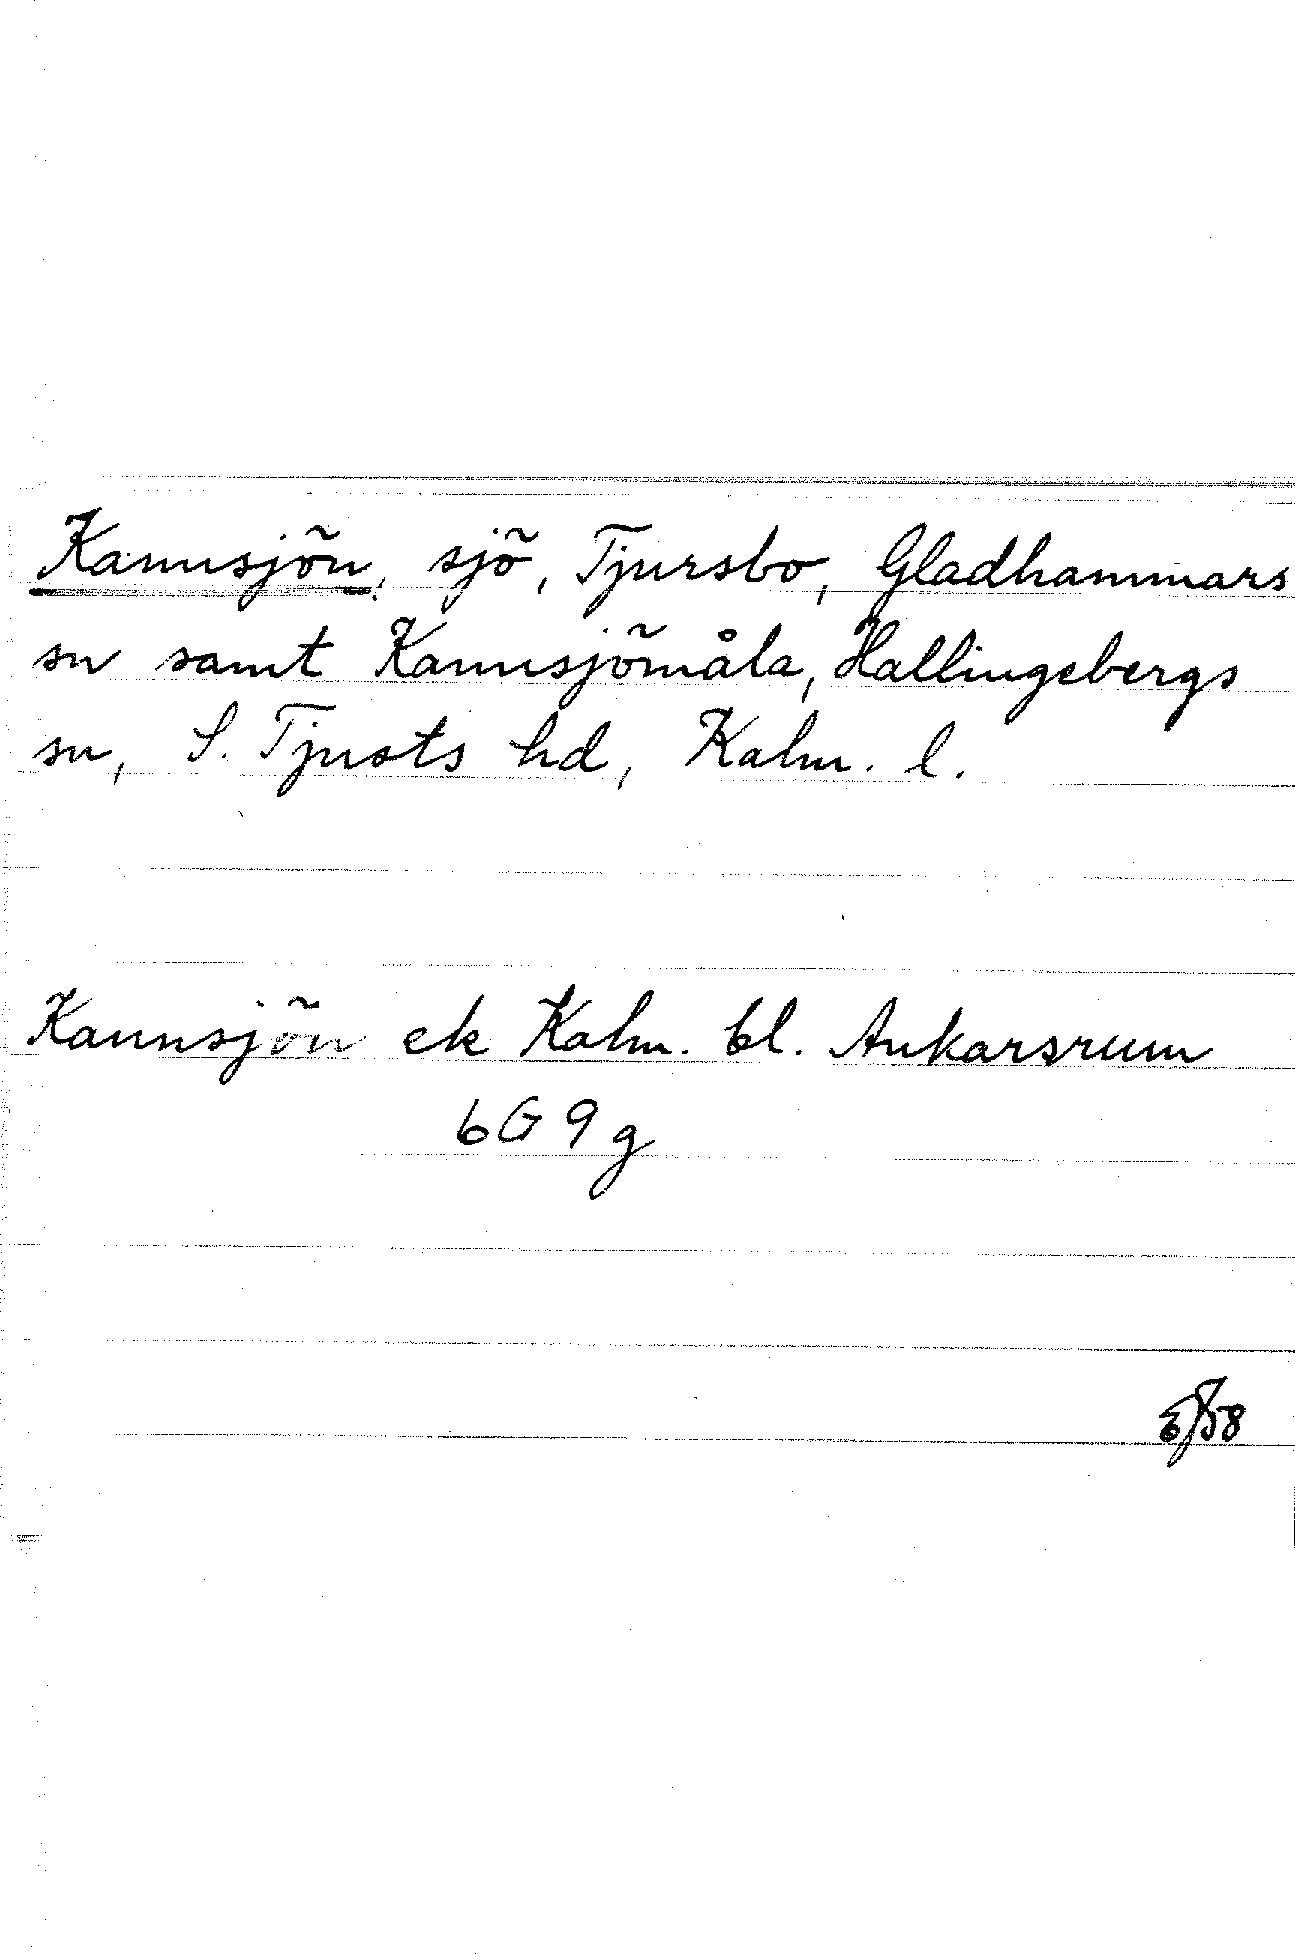 Kannsjön, sjö, Tjursbo, Gladhammars
sn samt Kannsjömåla, Hallingebergs
sn, S. Tjusts hd, Kalm. l.
Kannsjön ek Kalm. bl. Ankarsrum
6G 9g